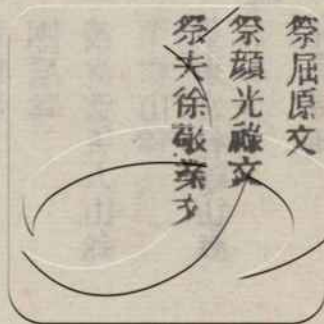 祭屈原文
祭顔光祿文
祭夫徐敬業文